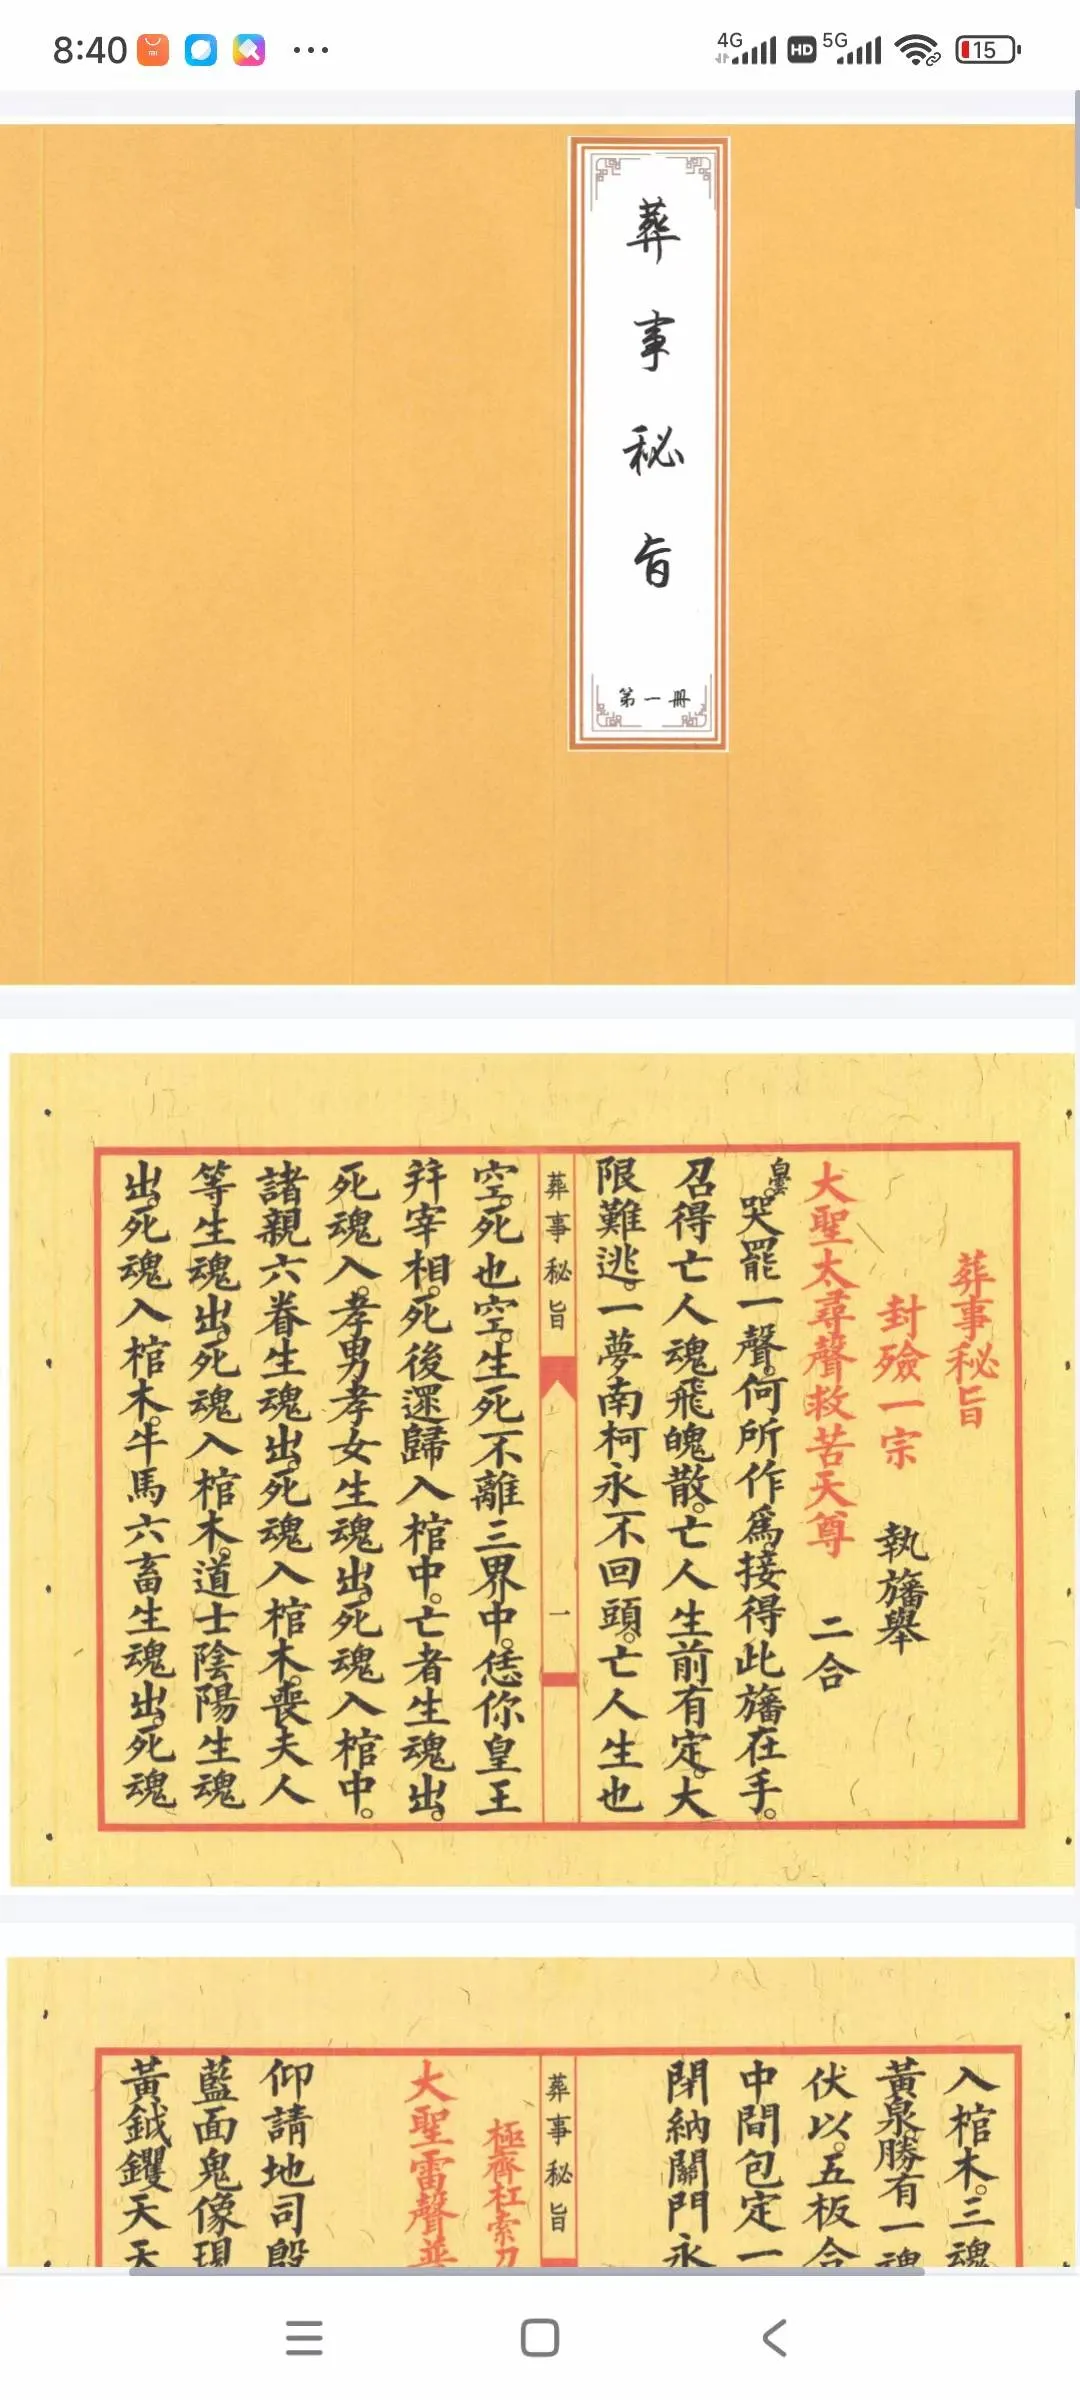 8:40
4G
HD
5G
15
葬事秘旨
第一冊
葬事秘旨
封殮一宗 執旛舉
大聖太尋聲救苦天尊 二合
哭罷一聲。何所作爲。接得此旛在手。
召得亡人魂飛魄散。亡人生前有定。大
限難逃。一夢南柯永不回頭。亡人生也
葬事秘旨 一
空。死也空。生死不離三界中。恁你皇王
并宰相。死後還歸入棺中。亡者生魂出。
死魂入。孝男孝女生魂出。死魂入棺中。
諸親六眷生魂出。死魂入棺木。喪夫人
等生魂出。死魂入棺木。道士陰陽生魂
出。死魂入棺木。牛馬六畜生魂出。死魂
入棺木。三魂
黃泉。勝有一魂
伏以。五板合
中間包定一
閉納關門永
葬事秘旨
極齊杠索刀
大聖雷聲普
仰請地司殷
藍面鬼像現
黃鉞鑺天天